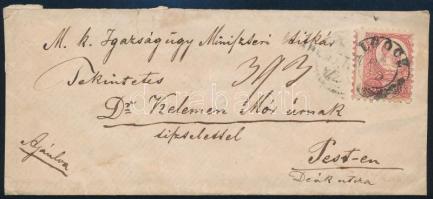 M. k. Igazságügy Miniszteri titkár
Tekintetes 313
Dr Kelemen Mór úrnak
tisztelettel
Ajánlva
Pest-en
Deák utcza